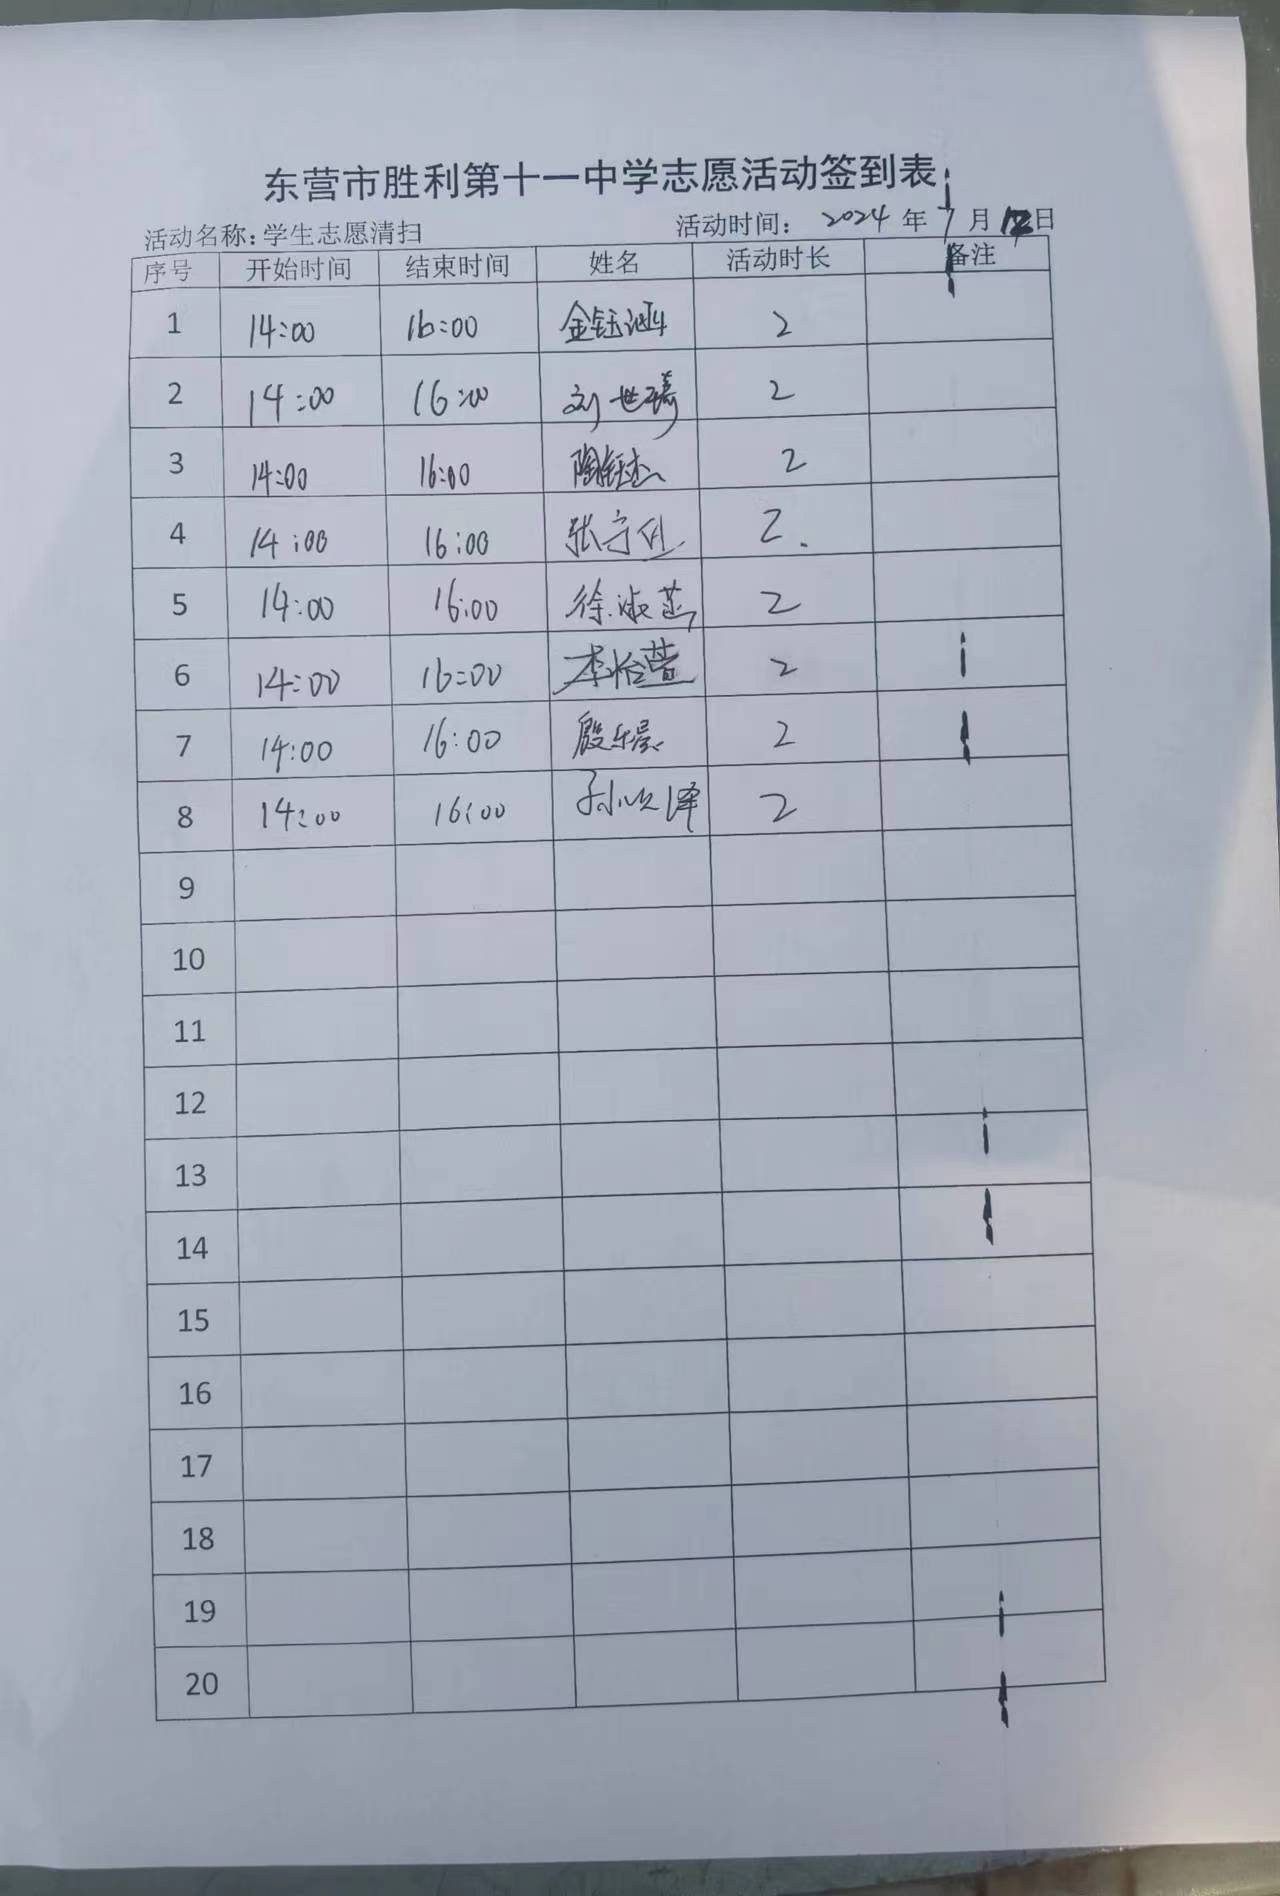 东营市胜利第十一中学志愿活动签到表
活动名称:学生志愿清扫 活动时间: 2024 年 7 月 日
序号 开始时间 结束时间 姓名 活动时长 备注
1 14:00 16:00 金钰涵 2
2 14:00 16:00 刘世琦 2
3 14:00 16:00 陶钰杰 2
4 14:00 16:00 张守 2.
5 14:00 16:00 徐淑菡 2
6 14:00 16:00 李怡萱 2
7 14:00 16:00 殷乐晨 2
8 14:00 16:00 孙 泽 2
9
10
11
12
13
14
15
16
17
18
19
20